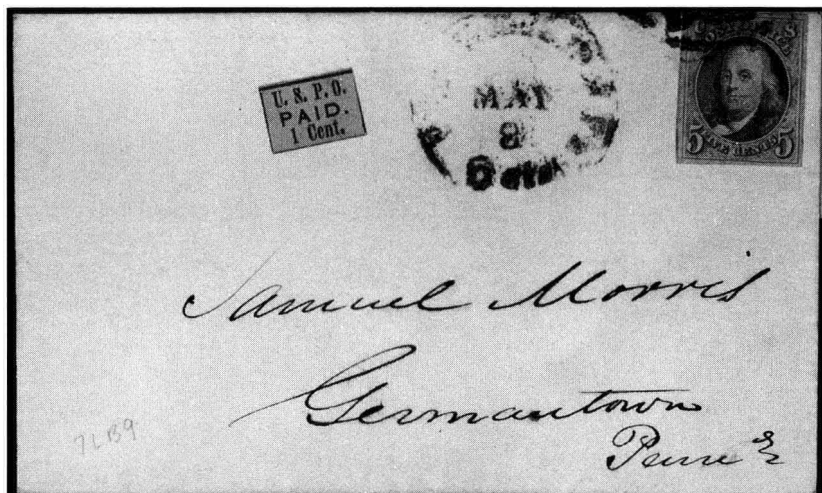 U. S. P. O.
PAID.
1 Cent.
MAY
8
5 cts
POST OFFICE
5 FIVE CENTS 5
Samuel Morris
Germantown
Penn
7LB9